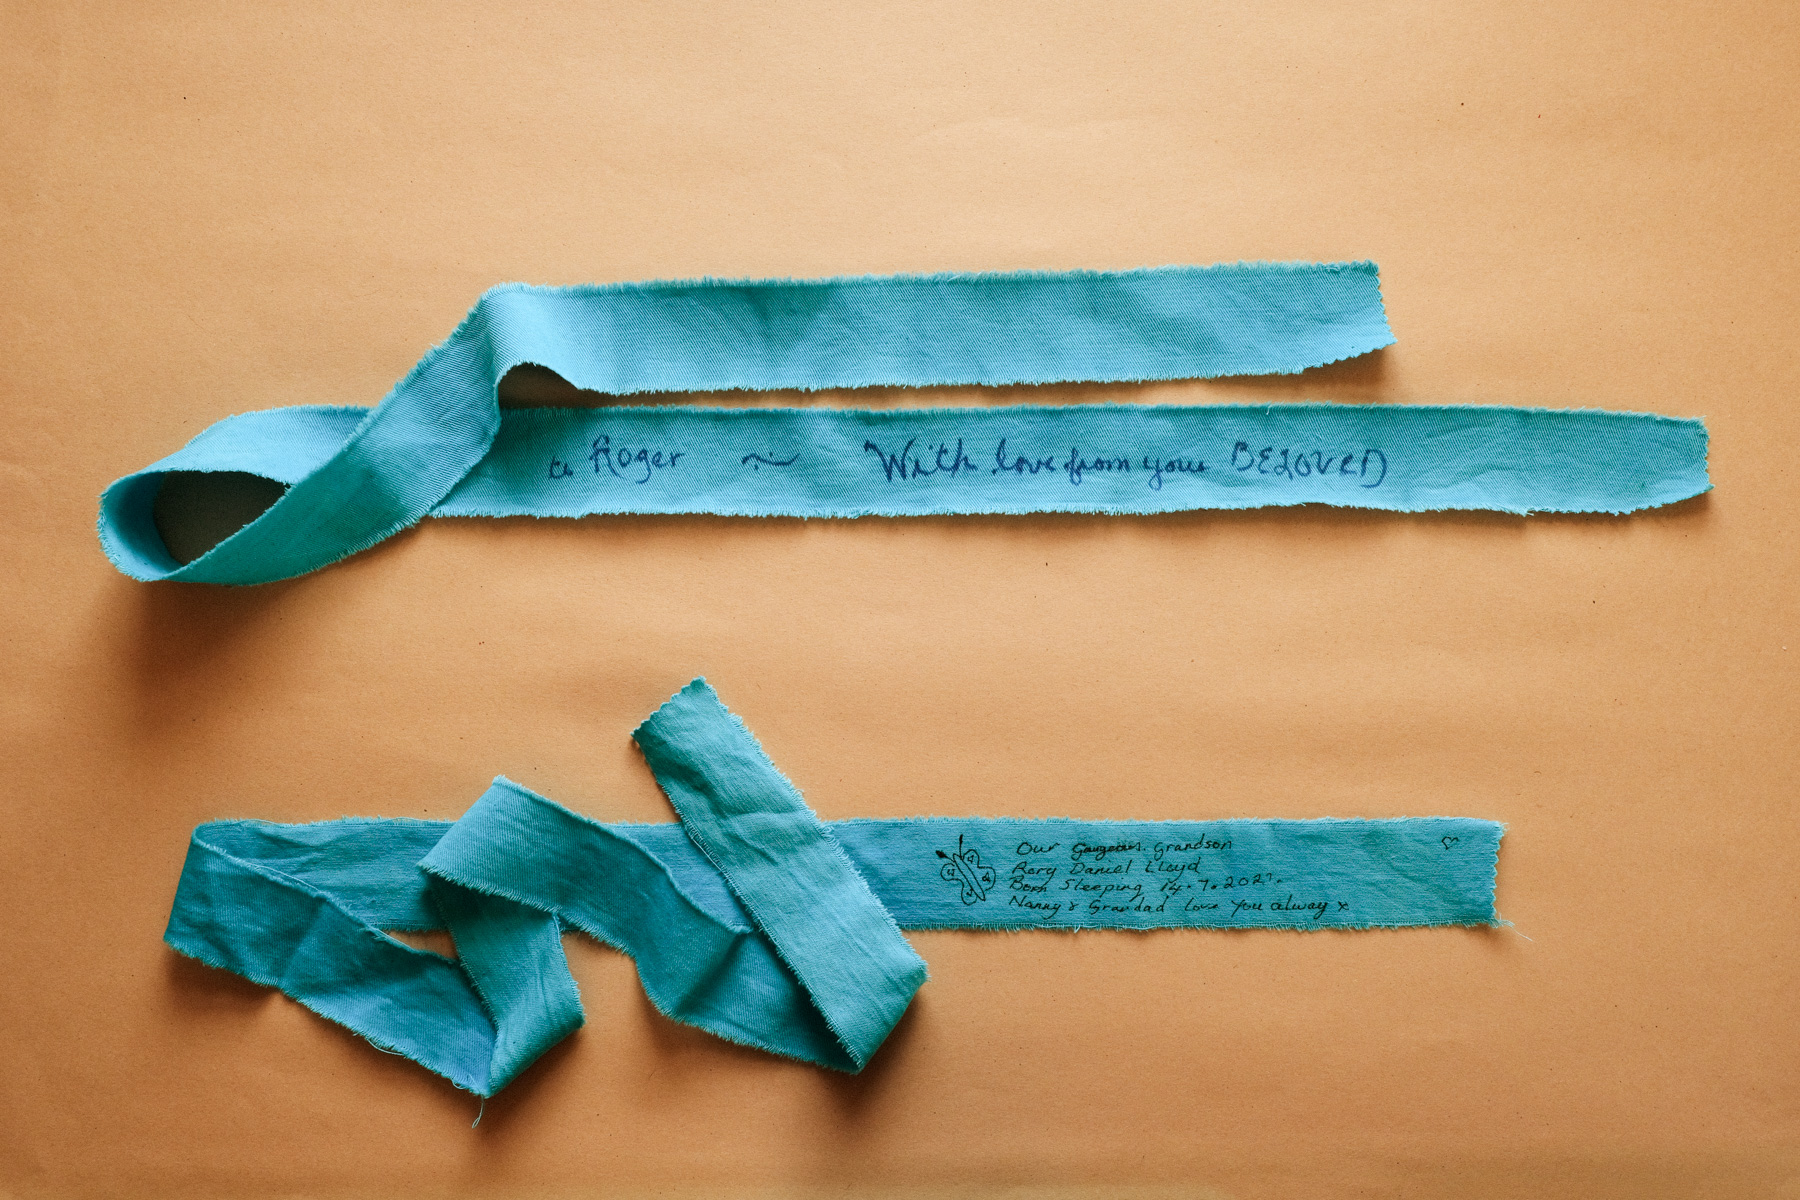 to Roger ~ With love from your BELOVED
Our Gorgeous Grandson
Rory Daniel Lloyd
Born Sleeping 14.7.2021.
Nanny & Grandad love you alway x